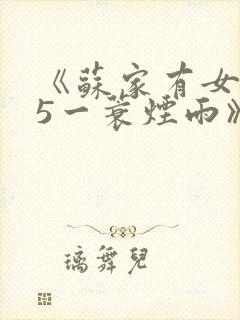 《蘇家有女
5一蓑煙雨》
璃舞兒